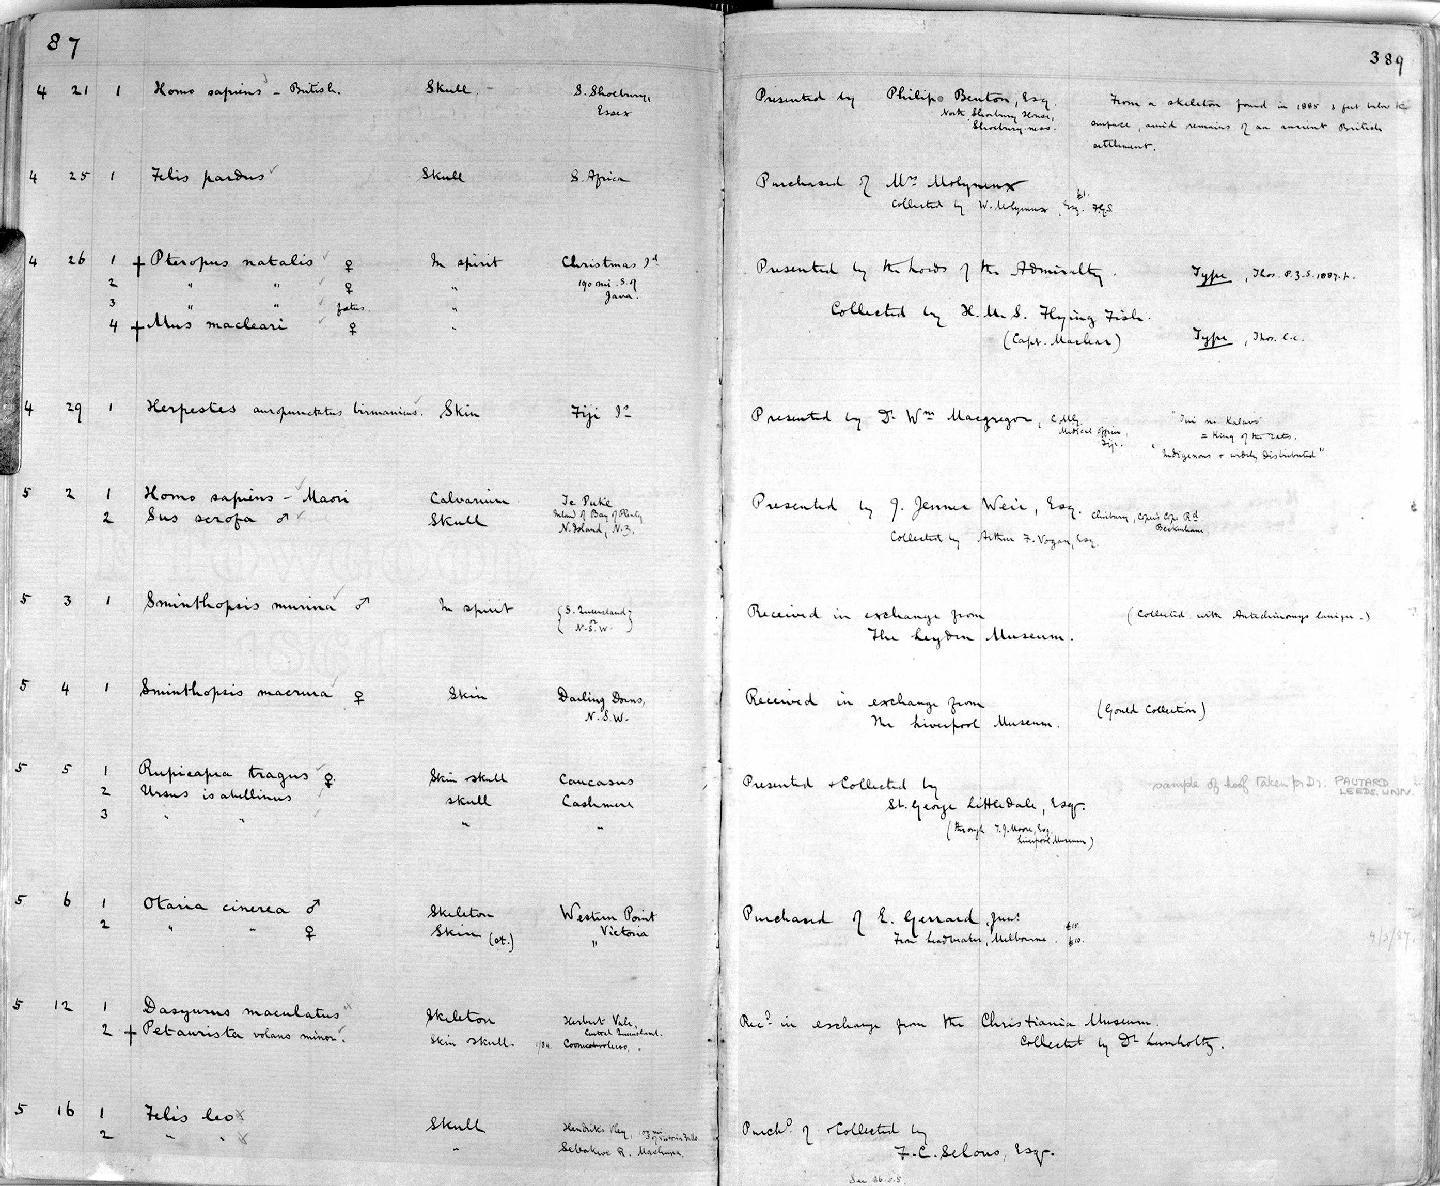 87
389
4 21 1 Homo sapiens - British. Skull. S. Shoebury, Presented by Philip Benton, Esq. From a skeleton found in 1885 3 feet below the
Essex North Shoebury House, surface, amid remains of an ancient British
Shoeburyness. settlement.
4 25 1 Felis pardus Skull S. Africa Purchased of Mrs Molyneux £1.
Collected by W. Molyneux, Esq. F.G.S.
4 26 1 †Pteropus natalis ♀ In spirit Christmas Id Presented by the Lords of the Admiralty. Type, Thos. P.Z.S. 1887. p.
2 " " ♀ " 190 mi. S. of
3 " " foetus. " Java. Collected by H.M.S. Flying Fish.
4 †Mus macleari ♀ " (Capt. Maclear) Type, Thos. l.c.
4 29 1 Herpestes auropunctatus birmanicus. Skin Fiji Is Presented by Dr Wm Macgregor, C.M.G.
Medical Officer,
Fiji.
= King of the Rats.
"Indigenous & widely distributed"
5 2 1 Homo sapiens - Maori Calvarium Te Puke Presented by J. Jenner Weir, Esq. Chirbury, Copers Cope Rd
Beckenham
2 Sus scrofa ♂ Skull Inland of Bay of Plenty
N. Island, N.Z. Collected by Arthur F. Vogan, Esq.
5 3 1 Sminthopsis murina ♂ In spirit {S. Queensland} Received in exchange from (Collected with Antechinomys laniger.)
{or N.S.W.} The Leyden Museum.
5 4 1 Sminthopsis macrura ♀ Skin Darling Downs, Received in exchange from (Gould Collection)
N.S.W. The Liverpool Museum.
5 5 1 Rupicapra tragus ♀ Skin & skull Caucasus Presented & Collected by sample of hoof taken for Dr. PAUTARD
LEEDS. UNIV.
2 Ursus isabellinus skull Cashmere St. George Littledale, Esqr.
3 " " " " (through T.J. Moore, Esq.
Liverpool Museum)
5 6 1 Otaria cinerea ♂ Skeleton Western Point Purchased of E. Gerrard Junr. £10.
2 " " ♀ Skin (st.) " Victoria From Leadbeater, Melbourne. £10.
5 12 1 Dasyurus maculatus Skeleton Herbert Vale, Recd in exchange from the Christiania Museum.
Central Queensland.
2 †Petaurista volans minor. Skin & skull. Collected by Dr Lumholtz.
5 16 1 Felis leo Skull Purchd of & Collected by
2 " " " F.C. Selous, Esqr.